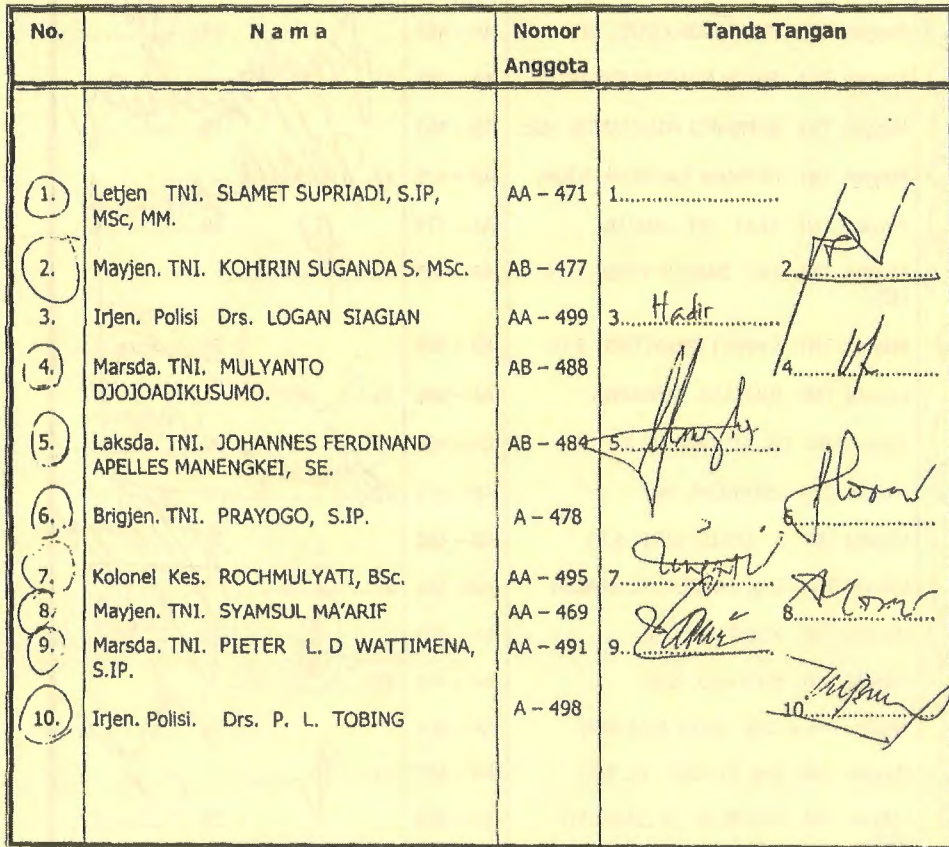 No. N a m a Nomor Anggota Tanda Tangan
1. Letjen TNI. SLAMET SUPRIADI, S.IP, AA – 471 1...........................
MSc, MM.
2. Mayjen. TNI. KOHIRIN SUGANDA S. MSc. AB – 477 2...........................
3. Irjen. Polisi Drs. LOGAN SIAGIAN AA – 499 3...Hadir...........................
4. Marsda. TNI. MULYANTO AB – 488 4...........................
DJOJOADIKUSUMO.
5. Laksda. TNI. JOHANNES FERDINAND AB – 484 5...........................
APELLES MANENGKEI, SE.
6. Brigjen. TNI. PRAYOGO, S.IP. A – 478 6...........................
7. Kolonel Kes. ROCHMULYATI, BSc. AA – 495 7...........................
8. Mayjen. TNI. SYAMSUL MA'ARIF AA – 469 8...........................
9. Marsda. TNI. PIETER L. D WATTIMENA, AA – 491 9...........................
S.IP.
10. Irjen. Polisi. Drs. P. L. TOBING A – 498 10...........................